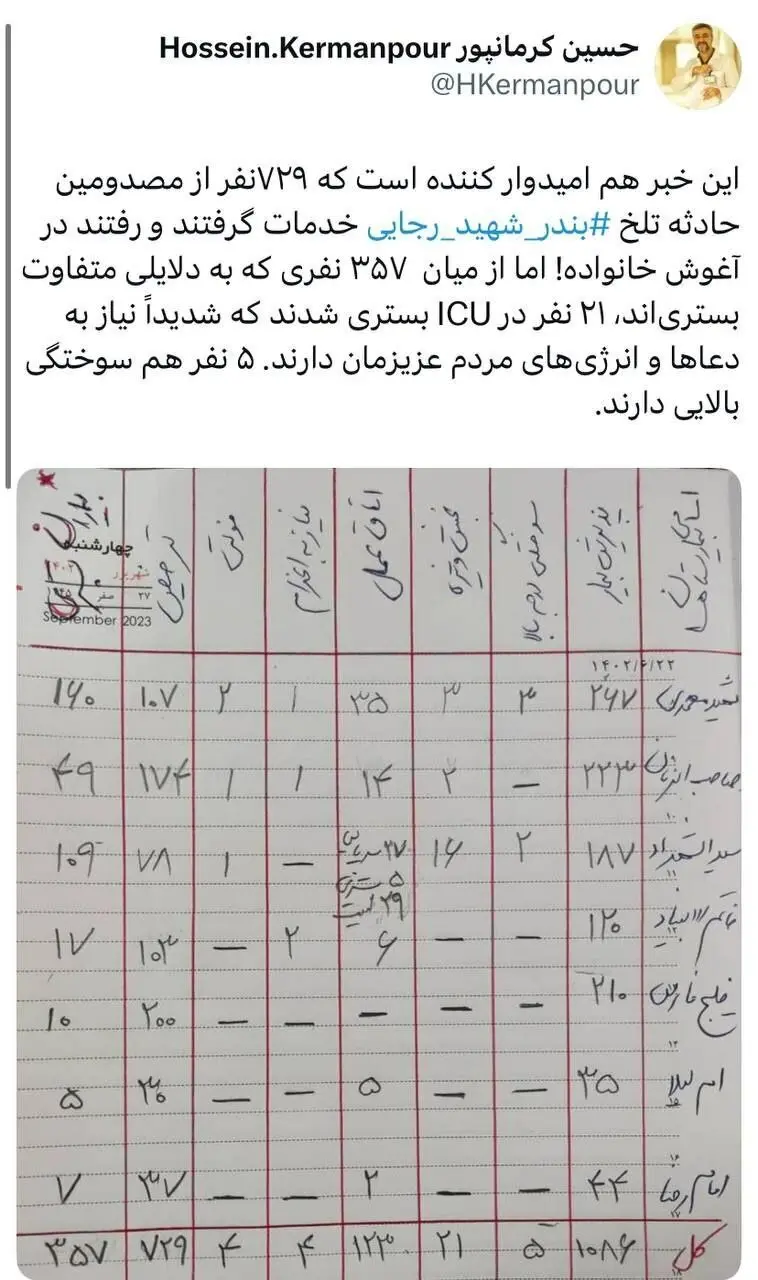 حسین کرمانپور Hossein.Kermanpour
@HKermanpour
این خبر هم امیدوار کننده است که ۷۲۹نفر از مصدومین
حادثه تلخ #بندر_شهید_رجایی خدمات گرفتند و رفتند در
آغوش خانواده! اما از میان ۳۵۷ نفری که به دلایلی متفاوت
بستری‌اند، ۲۱ نفر در ICU بستری شدند که شدیداً نیاز به
دعاها و انرژی‌های مردم عزیزمان دارند. ۵ نفر هم سوختگی
بالایی دارند.
اسامی بیمارستان‌ها پذیرش بیمار سوختگی درجه بالا بخش ویژه اتاق عمل نیاز به اعزام فوتی ترخیص
چهارشنبه
شهریور ۱۴۰۲
۲۷ صفر
September 2023
۱۴۰۲/۶/۲۲
شهید محمدی ۲۶۷ ۳ ۳ ۳۵ ۱ ۲ ۱۰۷ ۱۶۰
صاحب الزمان ۲۲۳ — ۲ ۱۴ ۱ ۱ ۱۷۴ ۴۹
سید الشهداء ۱۸۷ ۲ ۱۶ — ۱ ۷۸ ۱۰۹
خاتم الانبیاء ۱۲۰ — — ۶ ۲ — ۱۰۳ ۱۷
خلیج فارس ۲۱۰ — — — — — ۲۰۰ ۱۰
ام لیلا ۳۵ — — ۵ — — ۳۰ ۵
امام رضا ۴۴ — — ۲ — — ۳۷ ۷
کل ۱۰۸۶ ۵ ۲۱ ۱۲۳ ۴ ۴ ۷۲۹ ۳۵۷